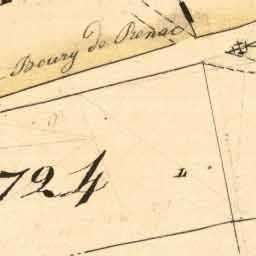 Bourg de Renac
724
L